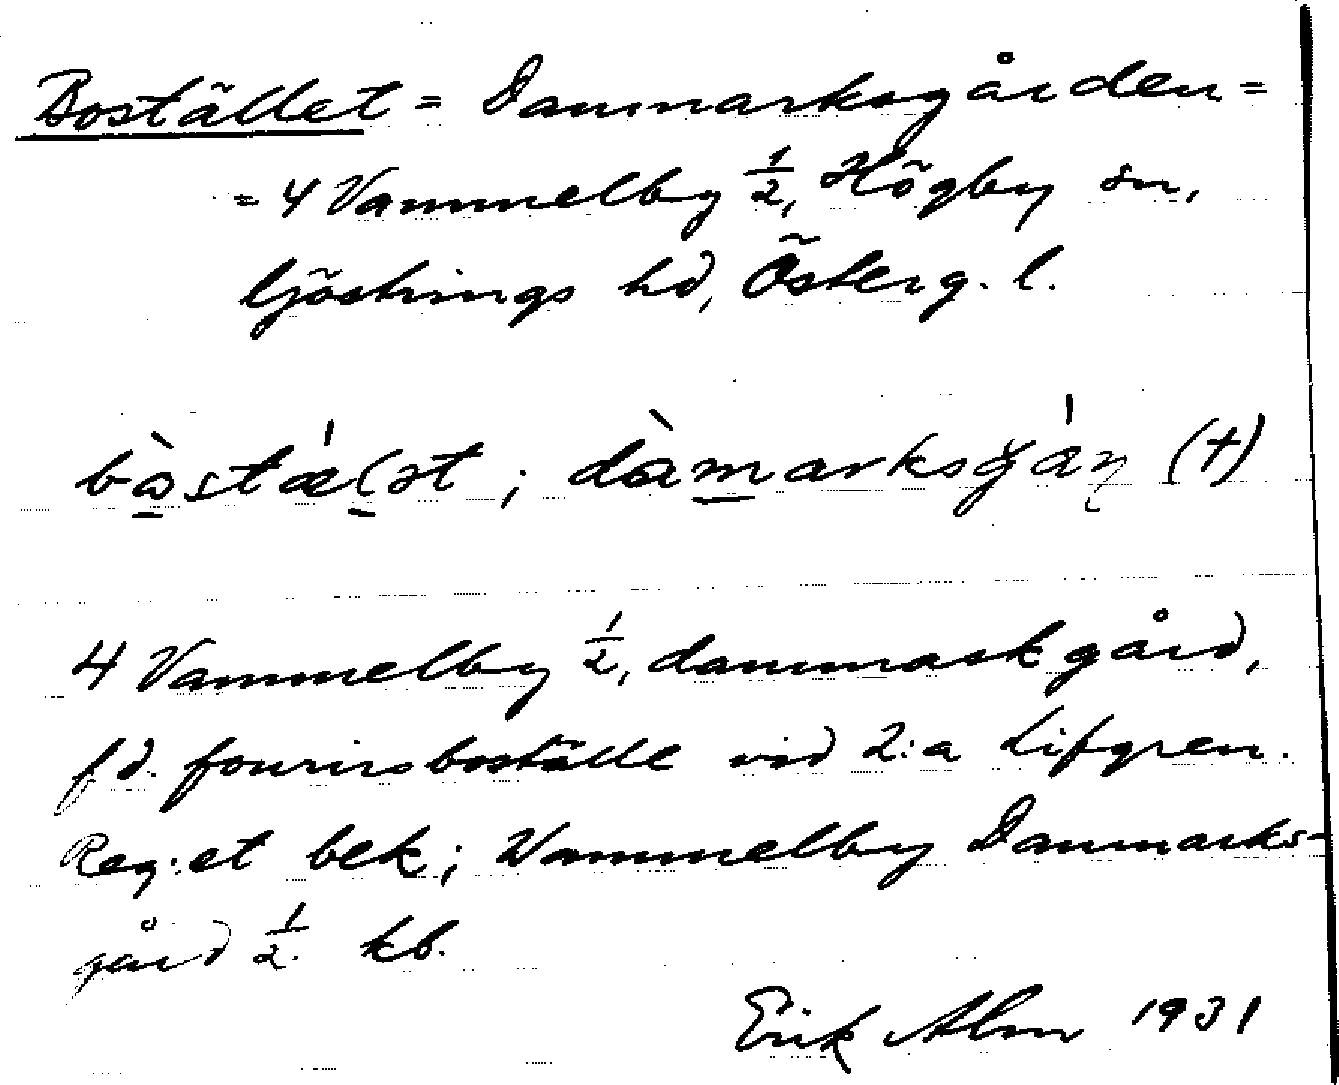 Bostället = Danmarksgården =
= 4 Vammelby 1/2, Högby sn,
Göstrings hd, Österg. l.
bòstælət ; dàmarksgán (†)
4 Vammelby 1/2, danmarkgård,
f d. fourirsboställe vid 2:a Lifgren.
Reg:et bek; Wammelby Danmarks-
gård 1/2. kb.
Erik Alm 1931